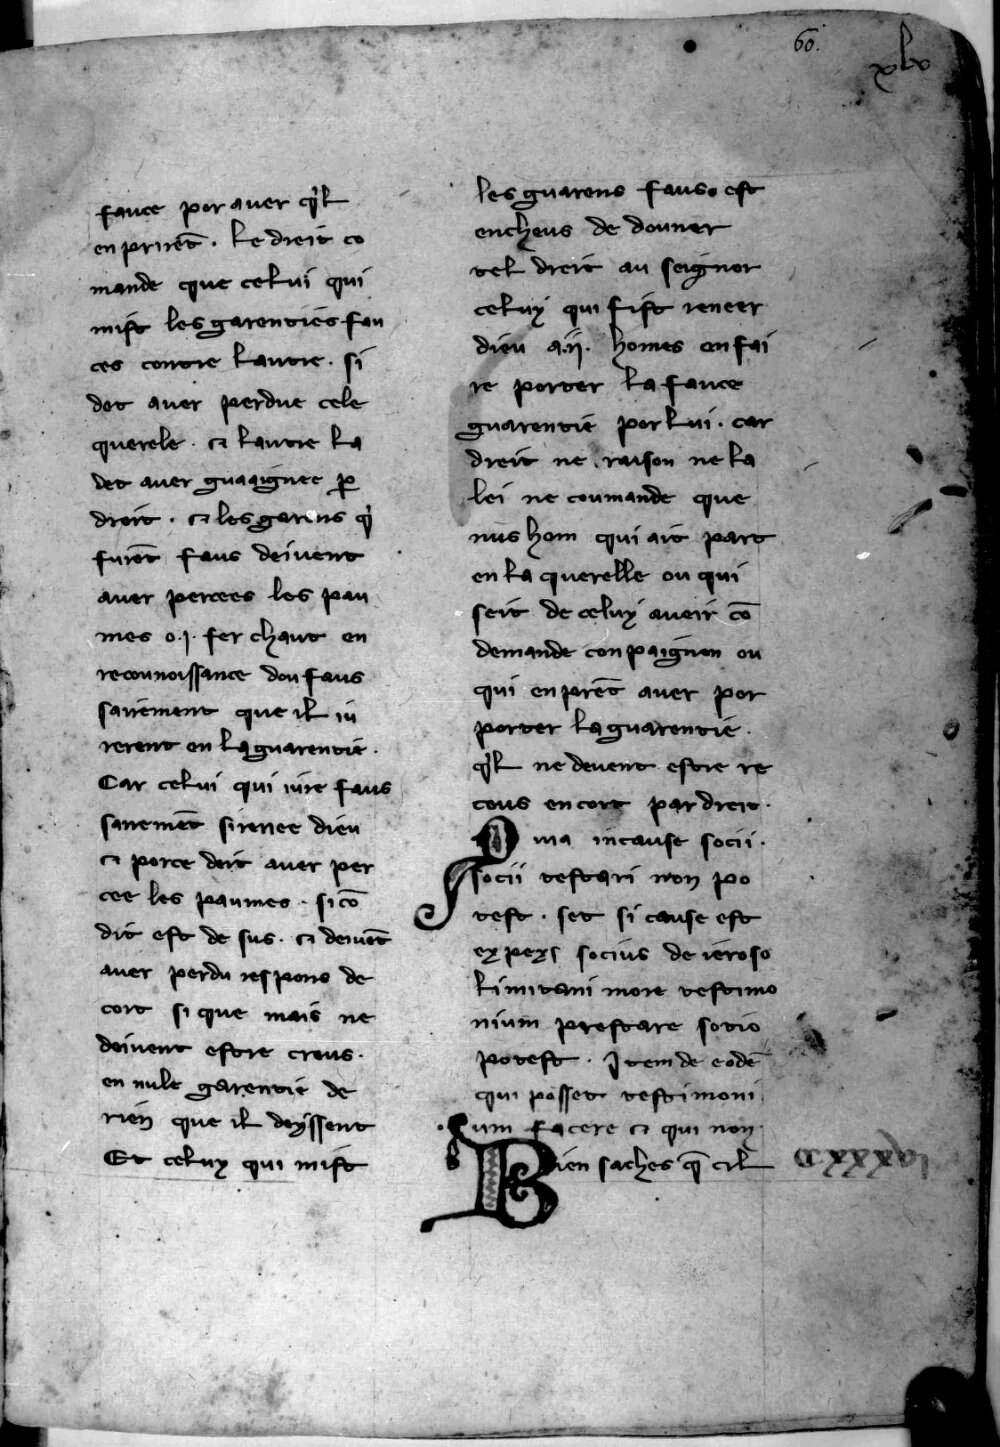 60.
xlv
fauce por auer q̃l
en prirẽt . le dreit co
mande que celui qui
mist les garenties fau
ces contre lautre . si
dot auer perdue cele
querele . ⁊ lautre la
det auer guaaignee ꝑ
droit . ⁊ les garens q̃
furẽt faus deiuent
auer percees les pau
mes o .j. fer chaut en
reconnoissance dou faus
sairement que il iu
rerent en la guarentie .
Car celui qui iure faus
sairemẽt si renee dieu
⁊ por ce doit auer per
cee les paumes . si cõ
dit est de sus . ⁊ deiuẽt
auer perdu respons de
cort si que mais ne
doiuent estre creus .
en nule garentie de
rien que il deyssent
Et celuy qui mist
les guarens faus . est
encheus de douner
tel dreit au seignor
celuy qui fist reneer
dieu a .ij. homes en fai
re porter la fauce
guarentie por lui . car
dreit ne raison ne la
lei ne coumande que
nus hom qui ait part
en la querelle ou qui
seit de celuy aueir cõ
demande conpaignon ou
qui en prẽt auer por
porter la guarentie .
q̃l ne deuent estre re
ceus en cort par dreit .
una in cause socii .
socii testari non po
test . set si cause est
expexs socius de ieroso
limitani more testimo
nium prestare sotio
potest . Item de eodẽ
qui posset testimoni
um facere ⁊ qui non .
Bien saches q̃ cil
CXXXVI